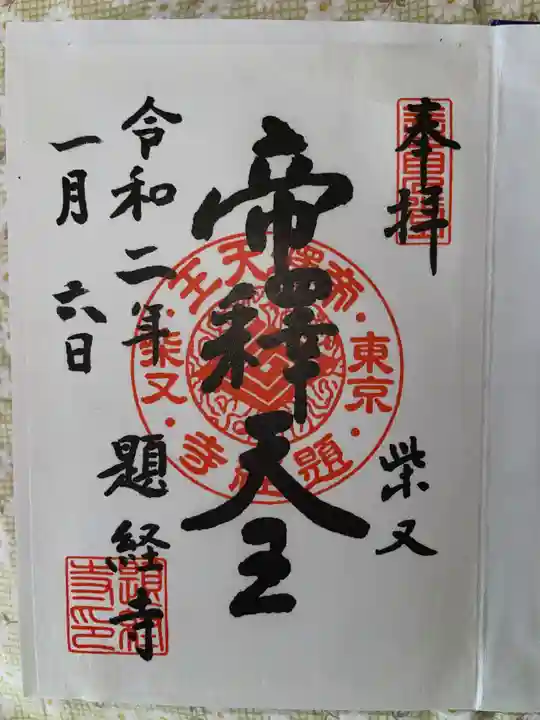 奉拝
柴又
帝釋天王
令和二年
一月六日
題経寺
東京
題経寺
柴又
帝釋天王